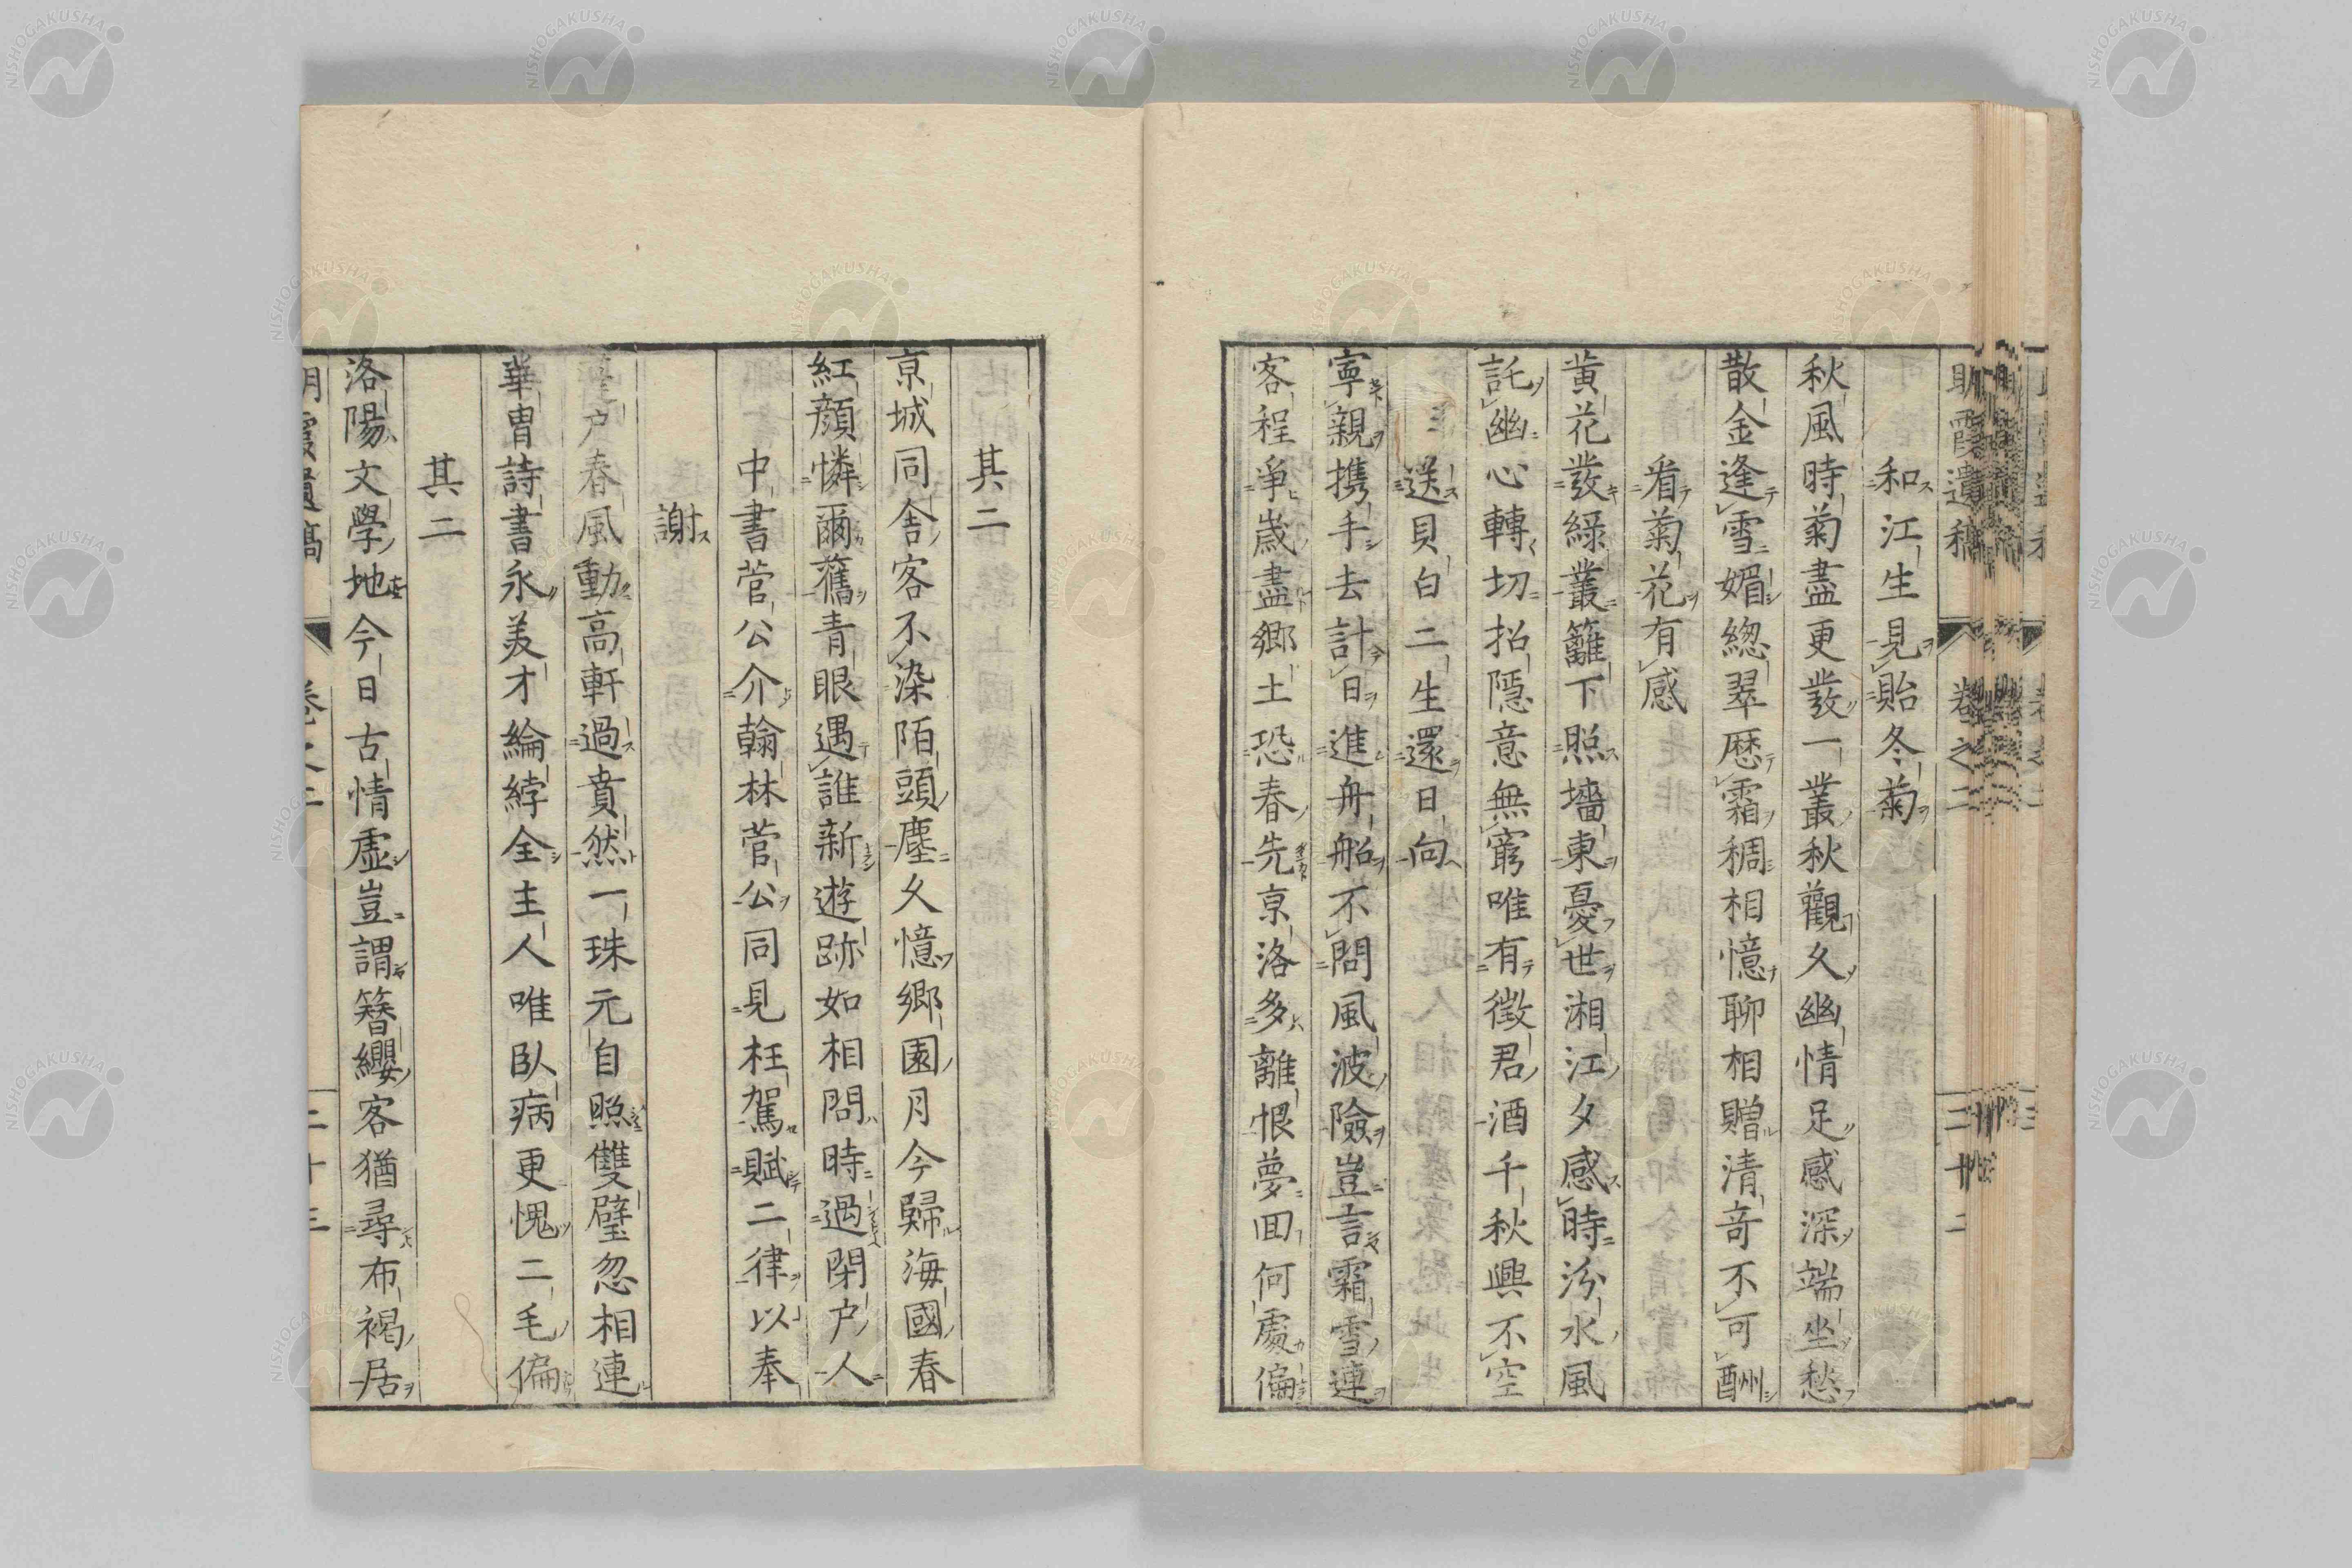 和江生見貽冬菊
秋風時菊盡更發一叢秋觀久幽情足感深端坐愁
散金逢雪媚總翠歷霜稠相憶聊相贈清奇不可酬
看菊花有感
黄花發綠叢籬下照墻東憂世湘江夕感時汾水風
託幽心轉切招隱意無窮唯有徵君酒千秋興不空
送貝白二生還日向
寧親携手去計日進舟船不問風波險豈言霜雪連
客程爭歲盡鄉土恐春先京洛多離恨夢回何處偏
其二
京城同舍客不染陌頭塵久憶鄉園月今歸海國春
紅顏憐爾舊青眼遇誰新遊跡如相問時過閉户人
中書菅公介翰林菅公同見枉駕賦二律以奉
謝
户春風動高軒過賁然一珠元自照雙璧忽相連
華冑詩書永美才綸綍全主人唯臥病更愧二毛偏
其二
洛陽文學地今日古情虛豈謂簪纓客猶尋布褐居
NISHOGAKUSHA